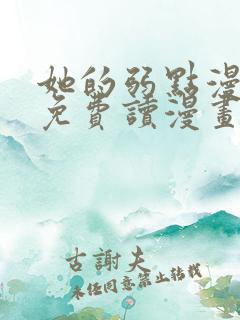 她的弱點漫
免費讀漫畫
古謝夫
未经同意禁止转载